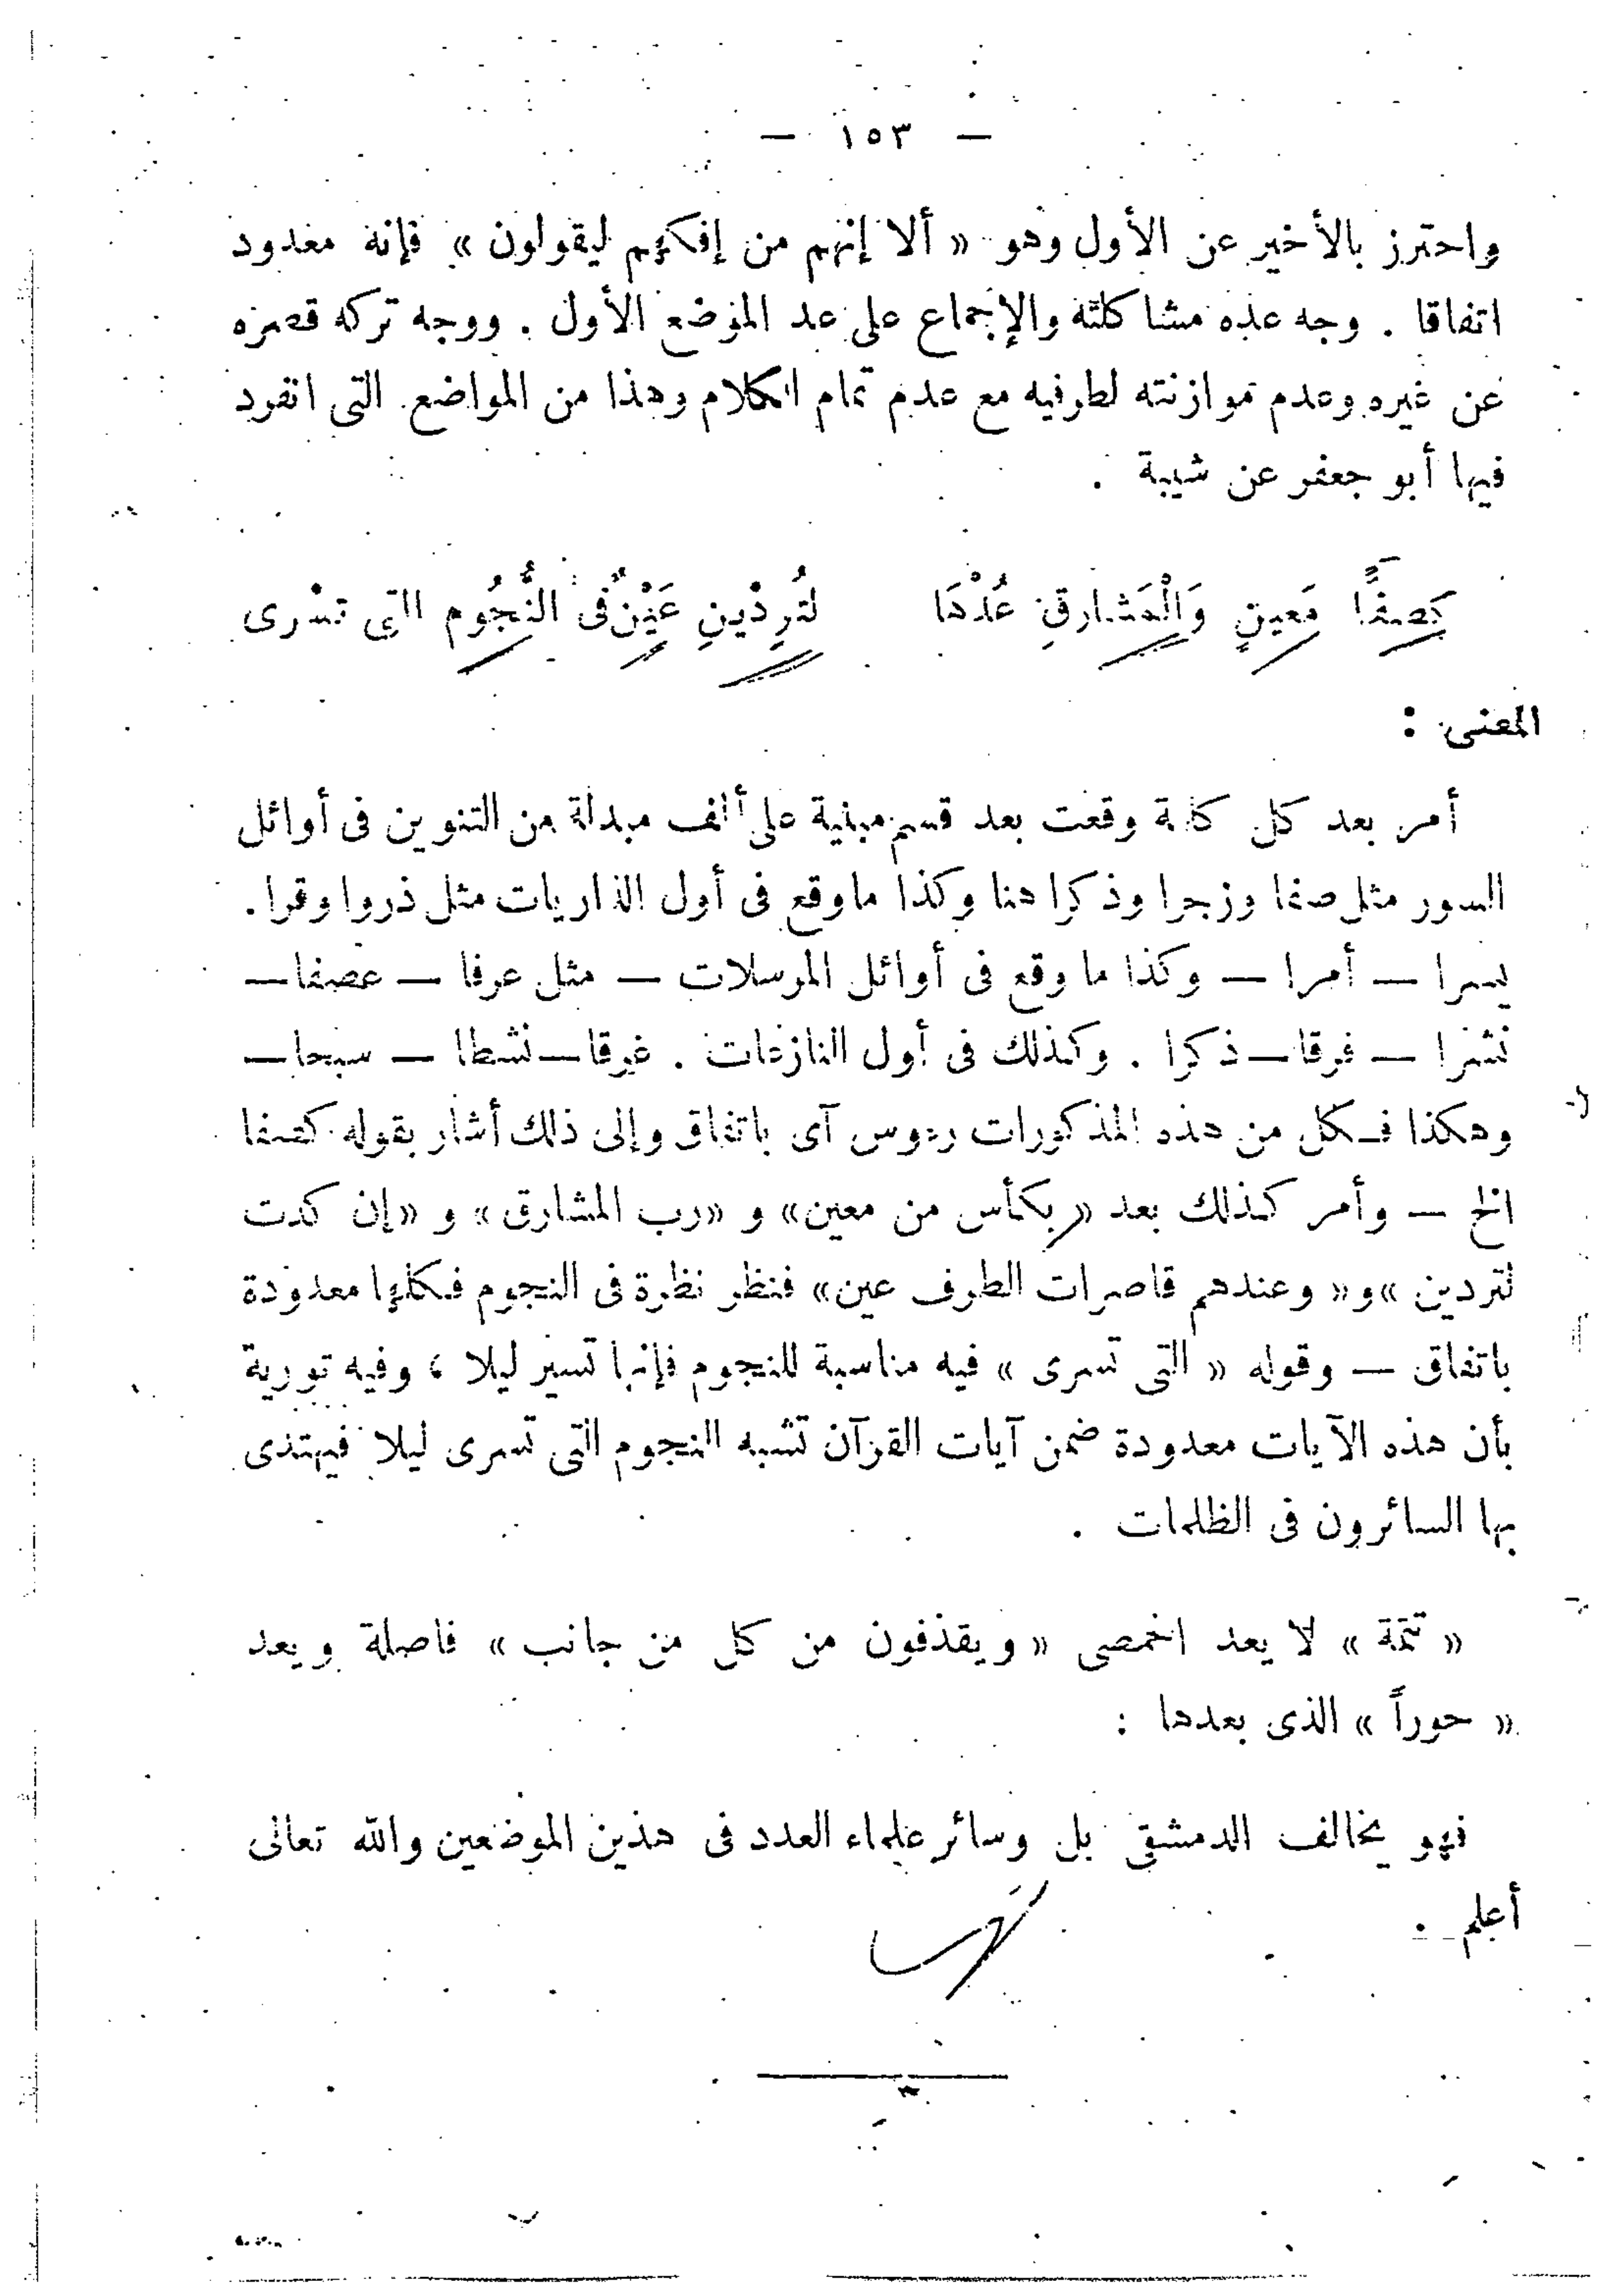 — ١٥٣ —
واحترز بالأخير عن الأول وهو « ألا إنهم من إفكهم ليقولون » فإنه معدود
اتفاقا . وجه عده مشاكلته والإجماع على عد الموضع الأول . ووجه تركه قصره
عن غيره وعدم موازنته لطرفيه مع عدم تمام الكلام وهذا من المواضع التى انفرد
فيها أبو جعفر عن شيبة .
كَصفًّا مَعينٍ وَالْمَشارقِ عُدْهَا لتُردْينِ عَيْنٌ فى النُّجُوم التى تسْرى
المعنى :
أمر بعد كل كلمة وقعت بعد قسم مبنية على ألف مبدلة من التنوين فى أوائل
السور مثل صفا وزجرا وذكرا هنا وكذا ما وقع فى أول الذاريات مثل ذروا وقرا .
يسرا — أمرا — وكذا ما وقع فى أوائل المرسلات — مثل عرفا — عصفا —
نشرا — فرقا — ذكرا . وكذلك فى أول النازعات . غرقا — نشطا — سبحا —
وهكذا فكل من هذه المذكورات رءوس آى باتفاق وإلى ذلك أشار بقوله كصفا
الخ — وأمر كذلك بعد « بكأس من معين» و «رب المشارق» و «إن كدت
لتردين »و« وعندهم قاصرات الطرف عين» فنظر نظرة فى النجوم فكلها معدودة
باتفاق — وقوله « التى تسرى » فيه مناسبة للنجوم فإنها تسير ليلا ، وفيه تورية
بأن هذه الآيات معدودة ضمن آيات القرآن تشبه النجوم التى تسرى ليلا فيهتدى
بها السائرون فى الظلمات .
« تتمة » لا يعد الحمصى « ويقذفون من كل من جانب » فاصلة ويعد
« حوراً » الذى بعدها :
فهو يخالف الدمشقى بل وسائر علماء العدد فى هذين الموضعين والله تعالى
أعلم .